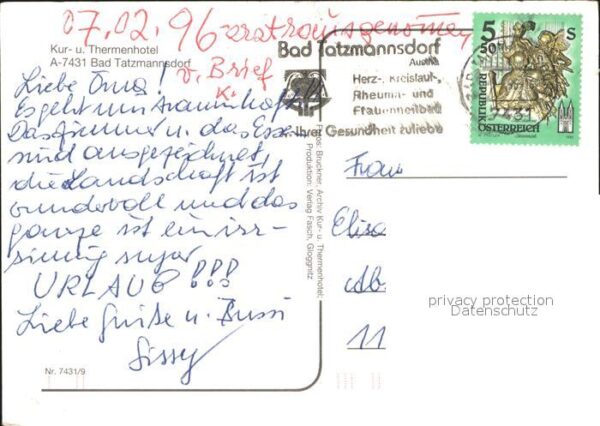 07.02.96
v. Brief
Kur- u. Thermenhotel
A-7431 Bad Tatzmannsdorf
Liebe Oma!
Es geht mir traumhaft!
Das Zimmer u. das Essen
sind ausgezeichnet,
die Landschaft ist
wundervoll und das
ganze ist ein irr-
sinnig super
URLAUB!!!
Liebe Grüße u. Bussi
Sissy
Nr. 7431/9
Fotos: Bruckner, Archiv Kur- u. Thermenhotel;
Produktion: Verlag Fasch, Gloggnitz
Bad Tatzmannsdorf
Austria
Herz-, Kreislauf-,
Rheuma- und
Frauenheilbad
Ihrer Gesundheit zuliebe
7431
5 50 S
REPUBLIK
ÖSTERREICH
Frau
Elisa
Ab
11
privacy protection
Datenschutz